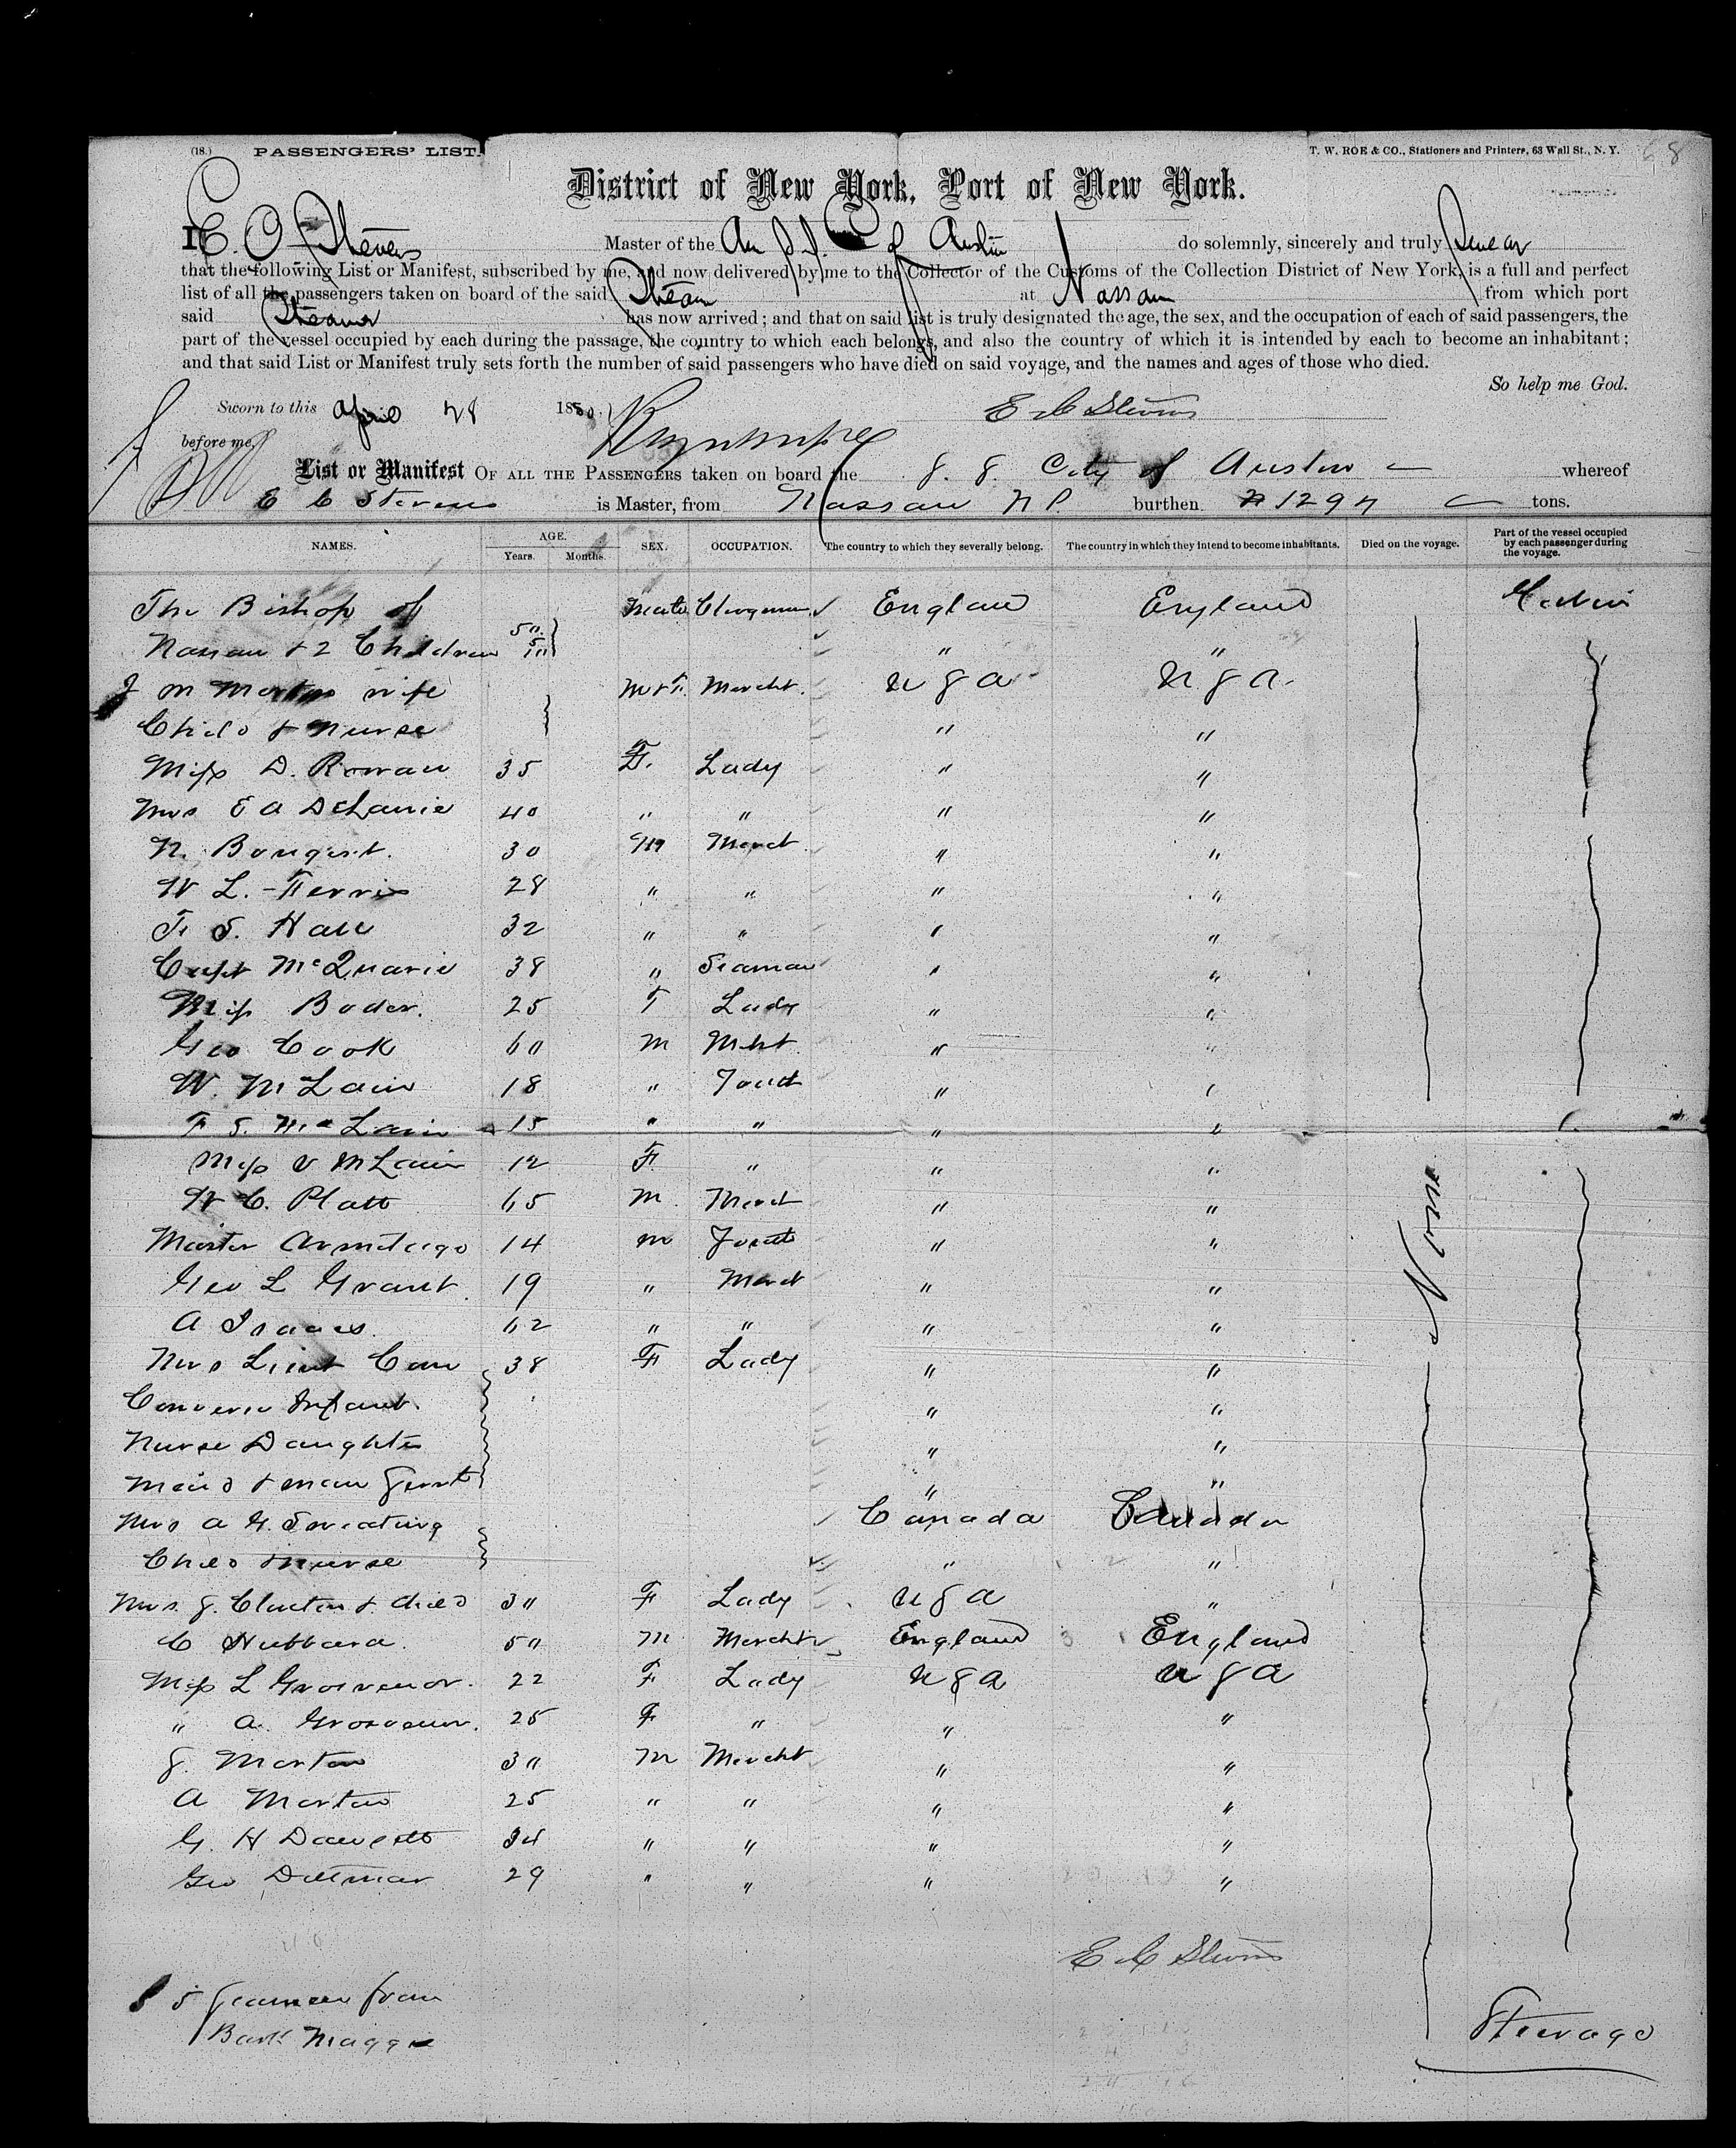 (18.) PASSENGERS' LIST. T. W. ROE & CO., Stationers and Printers, 63 Wall St., N. Y. 68
District of New York, Port of New York.
I E. C. Stevens Master of the Am S.S. C of Austin do solemnly, sincerely and truly swear
that the following List or Manifest, subscribed by me, and now delivered by me to the Collector of the Customs of the Collection District of New York, is a full and perfect
list of all the passengers taken on board of the said Steam at Nassau from which port
said Steamer has now arrived; and that on said list is truly designated the age, the sex, and the occupation of each of said passengers, the
part of the vessel occupied by each during the passage, the country to which each belongs, and also the country of which it is intended by each to become an inhabitant;
and that said List or Manifest truly sets forth the number of said passengers who have died on said voyage, and the names and ages of those who died.
So help me God.
Sworn to this April 28 1880. E C Stevens
before me,
List or Manifest OF ALL THE PASSENGERS taken on board the S. S. City of Austin whereof
E C Stevens is Master, from Nassau N P. burthen 1297 tons.
NAMES. AGE. Years. Months. SEX. OCCUPATION. The country to which they severally belong. The country in which they intend to become inhabitants. Died on the voyage. Part of the vessel occupied by each passenger during the voyage.
The Bishop of Male Clergyman England England Cabin
Nassau & 2 Children 50. " "
J M Morton wife M & F. Mercht. U S A U S A.
Child & Nurse " "
Miss D. Rowan 35 F. Lady " "
Mrs E A DeLanie 40 " " " "
N. Bouget. 30 M Mercht " "
W L. Ferris 28 " " " "
F S. Hall 32 " " " "
Capt McQuarie 38 " Seaman " "
Miss Boder. 25 F Lady " "
Geo Cook 60 M Mcht. " "
W. McLain 18 " Youth " "
F S. McLain 15 " " " "
Miss V McLain 12 F. " " "
W C. Platt 65 M. Mercht " "
Master Armitage 14 M Youth " "
Geo L Grant. 19 " Mercht " "
A Isaacs. 62 " " " "
Mrs Lieut Com 38 F Lady " "
Converse Infant. " "
Nurse Daughter " "
Maid & man Servt " "
Mrs A G. Sweating Canada Canada
Child & nurse " "
Mrs. S. Cluston & child 30 F Lady U S A "
C Hubbard. 50 M Mercht England England
Miss L Grosvenor. 22 F Lady U S A U S A
" A. Grosvenor. 25 F " " "
S. Morton 30 M Mercht " "
A Morton 25 " " " "
G. H Dawsett 34 " " " "
Geo Dittmar 29 " " " "
None
E C Stevens
5 Seamen from
Bark Maggie Steerage